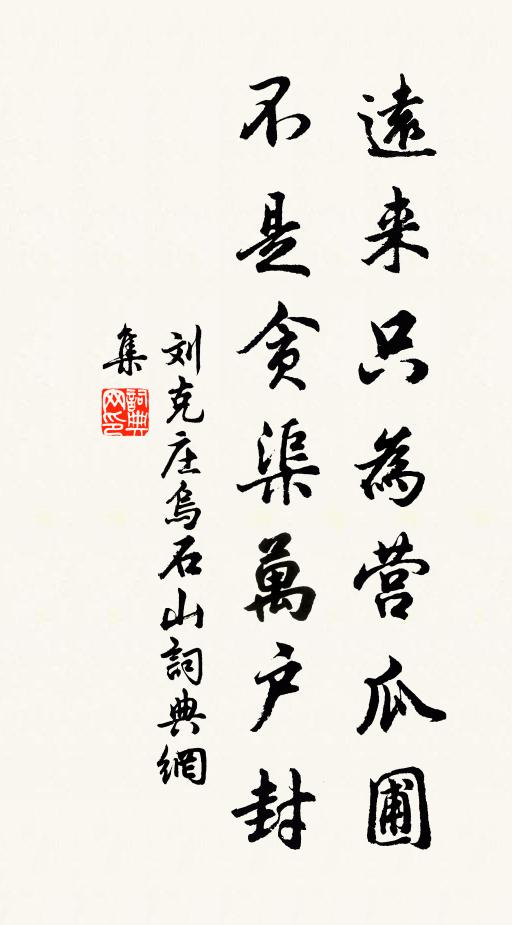 遠来只為营瓜圃
不是贪渠萬户封
刘克庄烏石山詞典網
集
詞典
网印